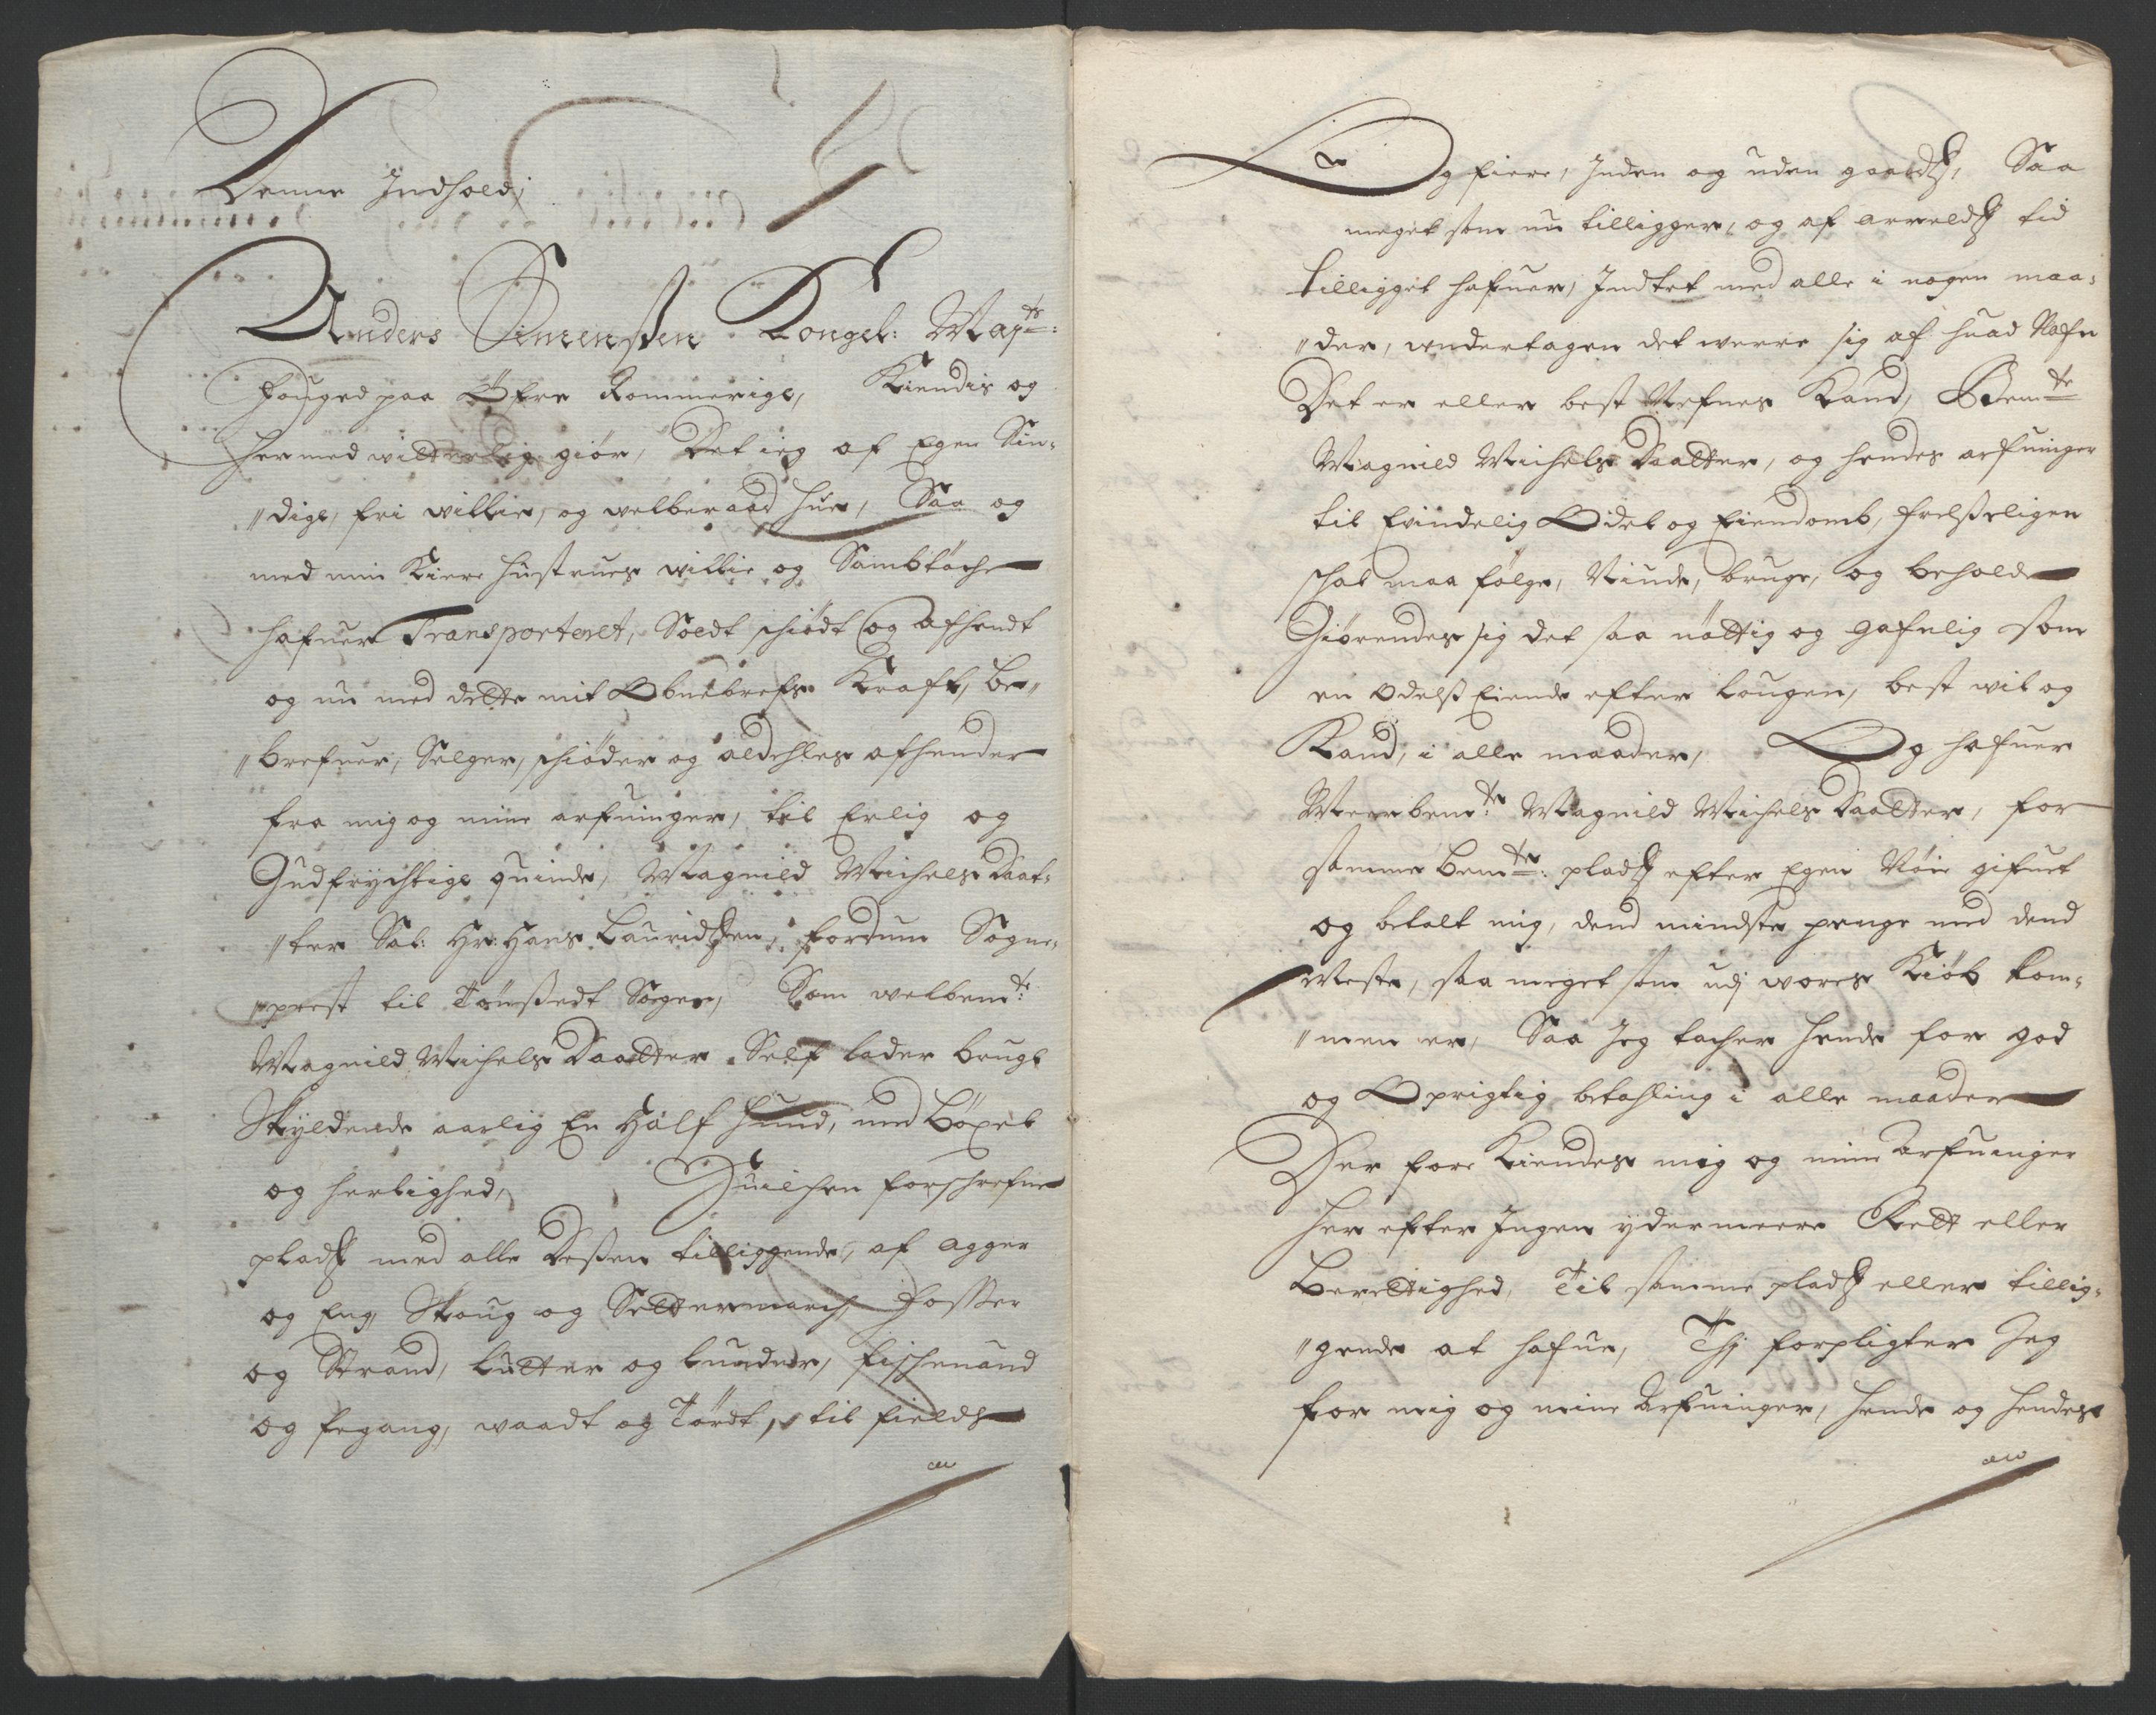 Denne Indhold,
Anders Simensen Kongel: Maj:ts
Fouged paa Øfre Rommerige, Kiendis og
her med witterlig giør, Det ieg af Egen Sin¬
"dige, fri willie, og welberaad hue, Saa og
med min Kiere hüstrues willie og Sambtöche
hafuer Transporteret, Soldt schiödt og afhendt
og nu med dette mit Obnebrefs Krafft, be"
"brefuer, Selger, schiöder og aldehles afhender
fra mig og mine arfuinger, til Erlig og
Gudfrychtige quinde, Magnild Michels Daat¬
"ter Sal: Hr: Hans Lauridtzen, fordum Sogne¬
"prest til Tönssedt Sogen, Som welbem:te
Magnild Michels Daatter Self lader bruge
Skyldende aarlig En Half Hund, med Böxel
og herlighed, Huilchen forschrefne
pladtz med alle Dessen tilliggende, af agger
og Eng, Skoug og Settermarch, Fosser
og Strand, lutter og lunder, fischeuand
og fegang, waadt og Tördt, til fields
Og fiere, Inden og uden gaardtz, Saa
meget som nu tilligger, og af arrelds tid
tilligget hafuer, Indtet med alle i nogen maa¬
"der, undertagen det werre sig af huad Nafn
Det er eller best Nefnes Kand, Bem:te
Magnild Michels Daatter, og hendes arfuinger
til Evindelig Odel og Eiendomb, frelsseligen
schal maa følge, Niude, bruge, og beholde
Giørendes sig det saa nöttig og gafnlig som
en odelss Eiende efter Lougen, best wil og
Kand, i alle maader, Og hafuer
Meerbem:te Magnild Michels Daatter, for
samme bem:te pladtz efter Egen Nöie gifuet
og betalt mig, dend mindste penge med dend
Meste, saa meget som udj wores Kiöb kom¬
"men er, Saa Jeg tacher hende for god
og Oprigtig betahling i alle maader
Der fore Kiendes mig og mine Arfuinger
her efter Ingen ydermeere Rett eller
Berettighed, Til samme pladtz eller tillig¬
"gende at hafue, Thj forpligter Jeg
for mig og mine Arfuinger, hende og hendes